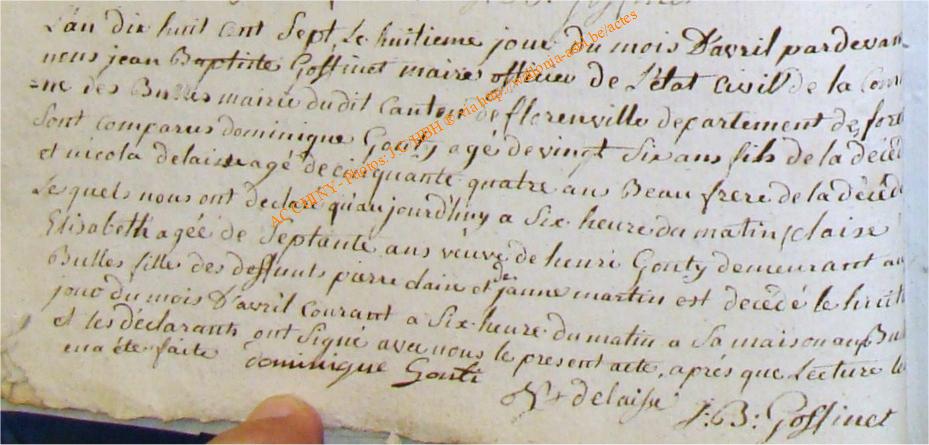 L'an dix huit cent Sept, Le huitieme jour du mois D'avril pardevan
nous jean Baptiste Goffinet maire officier de L'Etat Civil de la Com
=ne des Bulles mairie dudit Canton de florenville departement de fore
Sont comparus dominique Gouty agé de vingt Six ans fils de la décéd
et nicola delaise agé de cinquante quatre ans Beau frere de la décéd
Lequels nous ont declaré qu'aujourd'huy a Six heure du matin claise
Elisabeth agée de Septante ans veuve de henri Gouty demeurant au
Bulles fille des deffunts pierre et de janne martin est decédé le huit
jour du mois D'avril courant a Six heure du matin a Sa maison aux Bu
et les déclarants ont Signé avec nous le present acte, aprés que Lecture le
en a éte faite dominique Gouti
delaise J: B: Goffinet
AC CHINY - photos: J.C. HBH © via http://
.be/actes